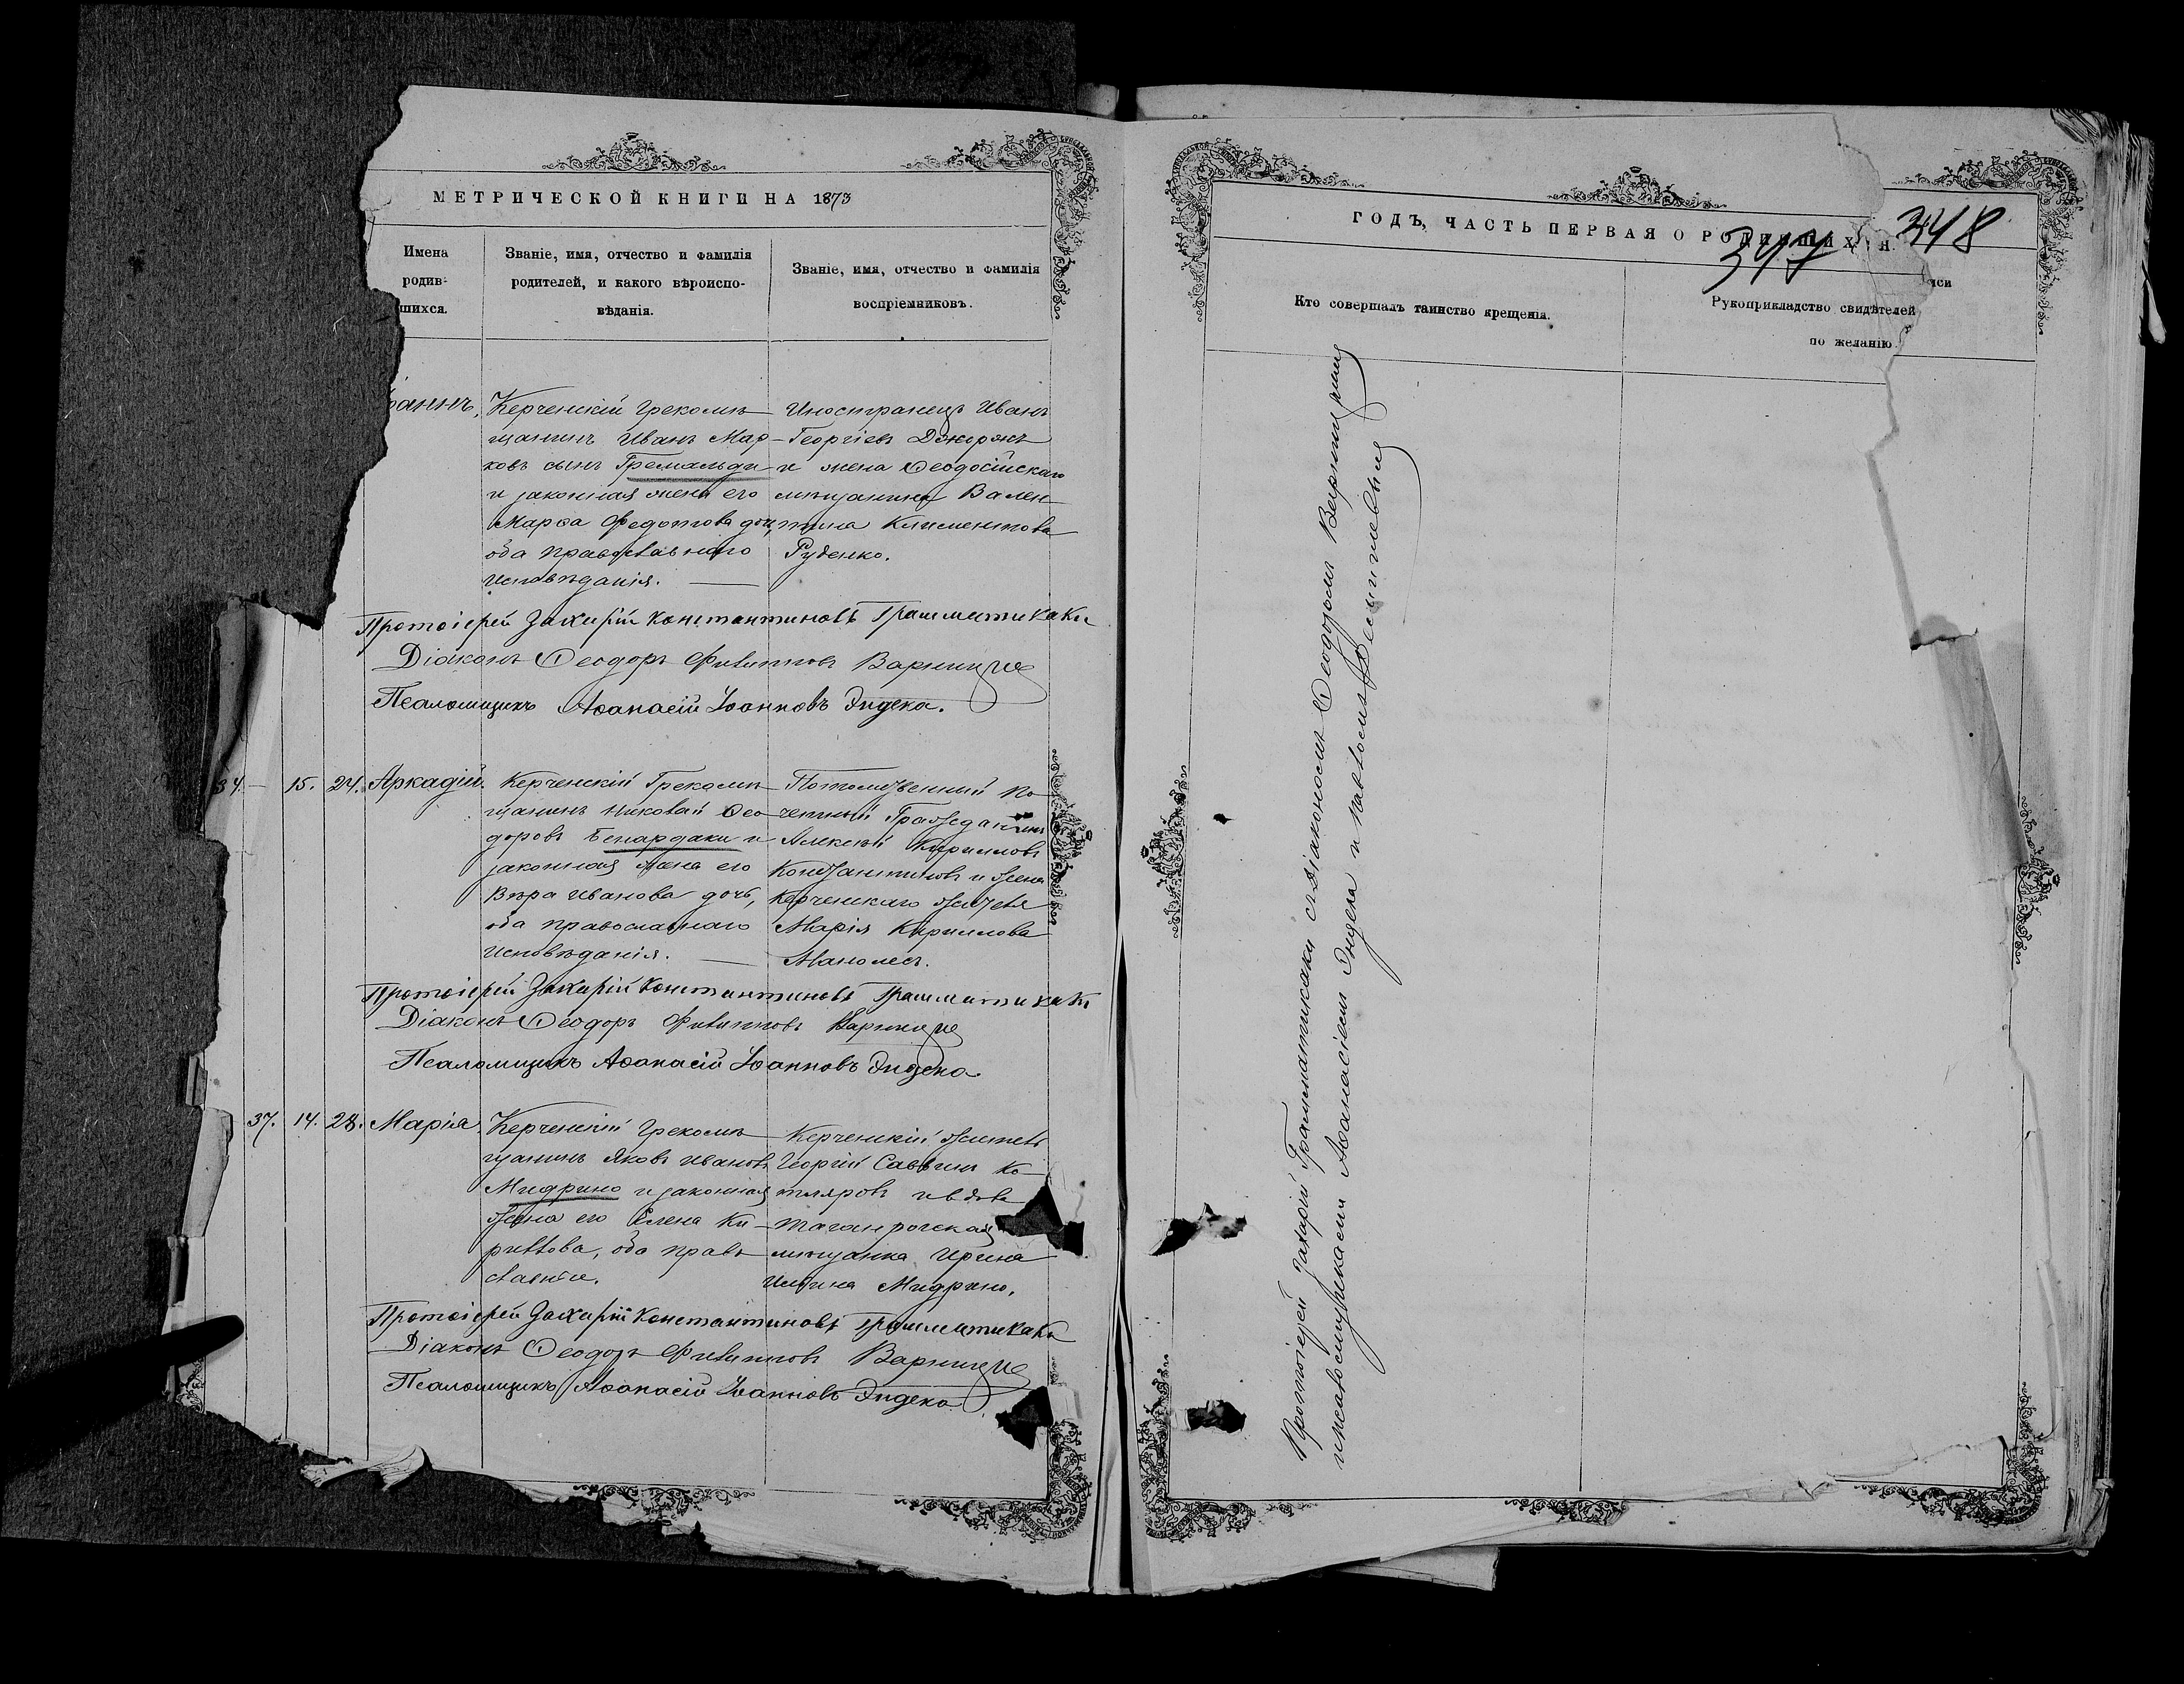 МЕТРИЧЕСКОЙ КНИГИ НА 1873
Имена
родив-
шихся.
Званіе, имя, отчество и фамилія
родителей, и какого вѣроиспо-
вѣданія.
Званіе, имя, отчество и фамилія
воспріемниковъ.
Керченскій Грекомѣ-
щанинъ Иванъ Мар-
ковъ сынъ Гремальди
и законная жена его
Марѳа Федотова дочь,
оба православнаго
исповѣданія.
Иностранецъ Иванъ
Георгіевъ
и жена Ѳеодосійскаго
мѣщанина Вален-
тина Климентова
Руденко.
Протоіерей Захарій Константиновъ Грамматикаки
Діаконъ Ѳеодоръ Филипповъ Варницце
Псаломщикъ Аѳанасій Іоанновъ Эндека.
34. — 15. 24. Аркадій.
Керченскій Грекомѣ-
щанинъ Николай Ѳео-
доровъ Бенардаки и
законная жена его
Вѣра Иванова дочь,
оба православнаго
исповѣданія.
Потомственный по-
четный Гражданинъ
Алексѣй Кирилловъ
Константиновъ и жена
Керченскаго жителя
Марія Кириллова
Манолесъ.
Протоіерей Захарій Константиновъ Грамматикаки
Діаконъ Ѳеодоръ Филипповъ Варницце
Псаломщикъ Аѳанасій Іоанновъ Эндека.
37. 14. 28. Марія.
Керченскій Грекомѣ-
щанинъ Яковъ Ивановъ
Мидрино и законная
жена его Елена Ки-
риллова, оба право-
славные.
Керченскій житель
Георгій Саввинъ Ко-
тляровъ и вдова
Таганрогская
мѣщанка Ирина
Ильина Мидрино.
Протоіерей Захарій Константиновъ Грамматикаки
Діаконъ Ѳеодоръ Филипповъ Варницце
Псаломщикъ Аѳанасій Іоанновъ Эндека
ГОДЪ, ЧАСТЬ ПЕРВАЯ О РОДИВШИХСЯ.
347 348
Кто совершалъ таинство крещенія.
Рукоприкладство свидѣтелей
по желанію.
Протоіерей Захарій Грамматикаки съ діакономъ Ѳеодоромъ Варниццемъ
и псаломщиками Аѳанасіемъ Эндека и Павломъ